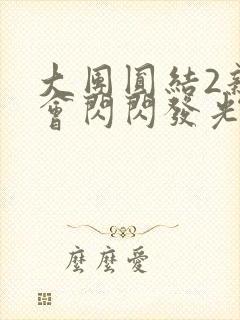 大团圓結2
會閃閃發光
麼麼愛